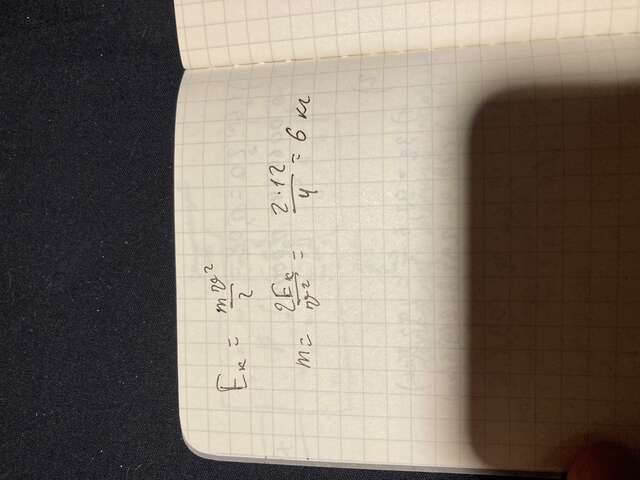 Eк = mv²/2
m = 2Eк/v² = 2·12/4 = 6 кг